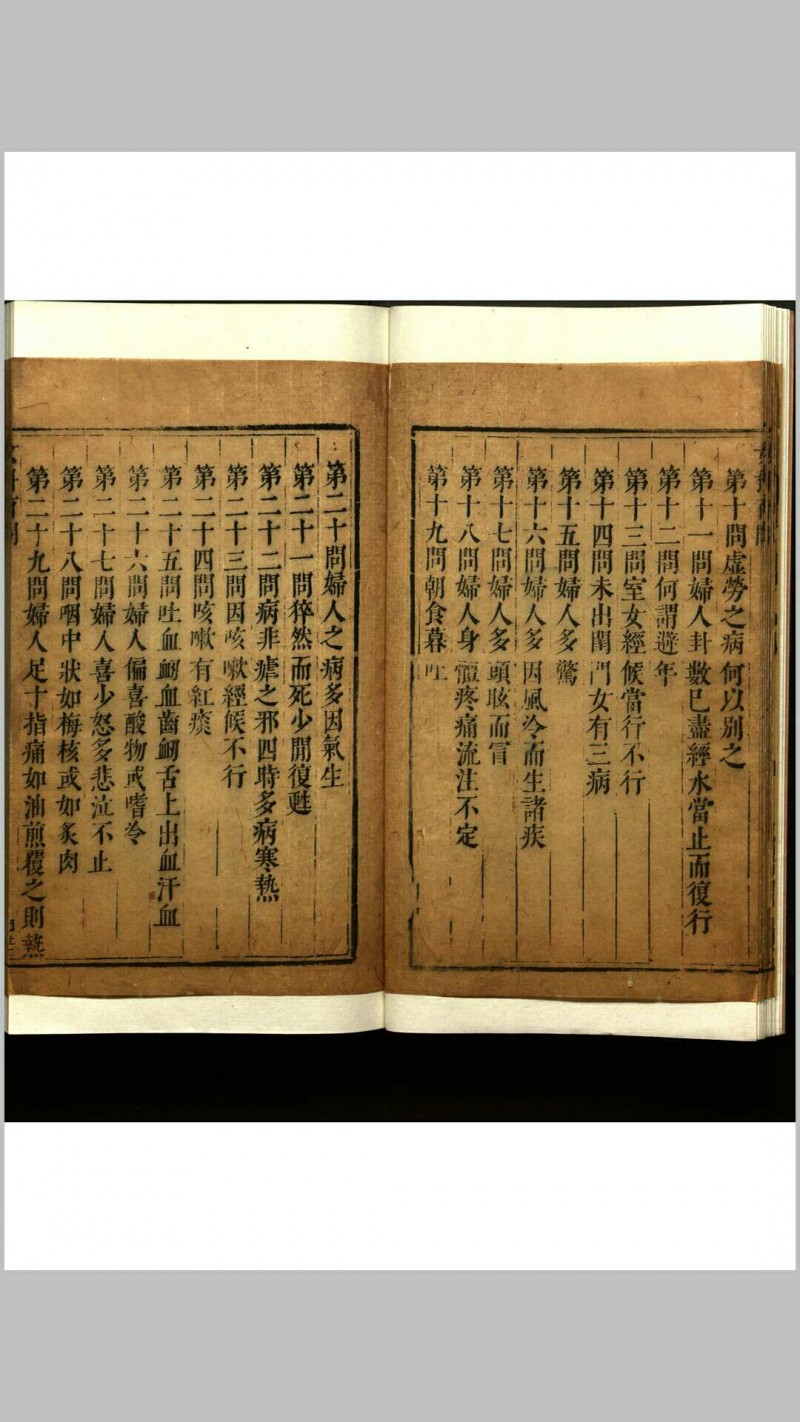 第十問虛勞之病何以別之
第十一問婦人卦數已盡經水當止而復行
第十二問何謂避年
第十三問室女經候當行不行
第十四問未出閨門女有三病
第十五問婦人多驚
第十六問婦人多因風冷而生諸疾
第十七問婦人多頭眩而冒
第十八問婦人身體疼痛流注不定
第十九問朝食暮吐
第二十問婦人之病多因氣生
第二十一問猝然而死少間復甦
第二十二問病非瘧之邪四時多病寒熱
第二十三問因咳嗽經候不行
第二十四問咳嗽有紅痰
第二十五問吐血衂血齒衂舌上出血汗血
第二十六問婦人偏喜酸物或嗜冷
第二十七問婦人喜少怒多悲泣不止
第二十八問咽中狀如梅核或如炙肉
第二十九問婦人足十指痛如油煎覆之則熱